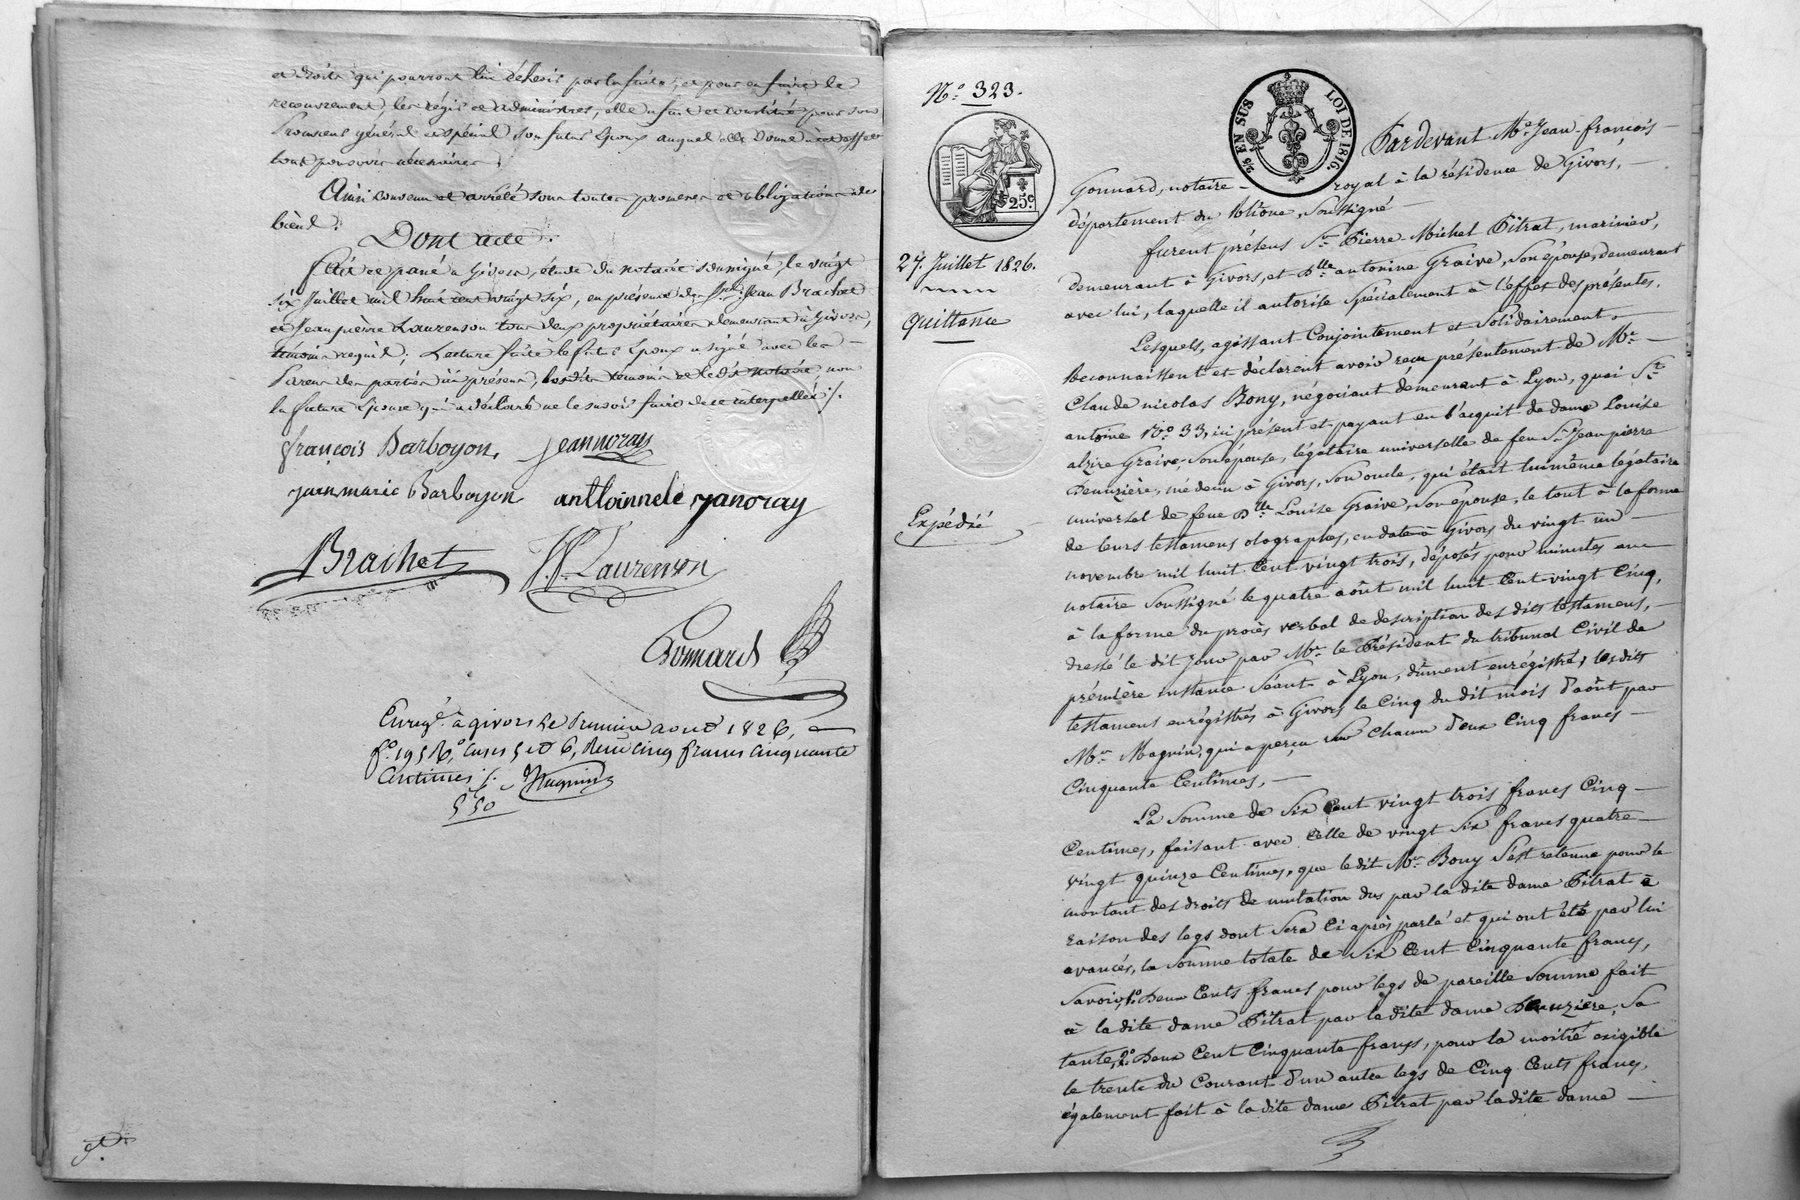 et droits qui pourront lui échoir par la suite, et pour en faire le
recouvrement, les régir et administrer, elle a fait et constitué pour son
Procureur général et spécial son futur époux auquel elle donne à cet effet
tout pouvoir nécessaire ;
Ainsi convenu et arrêté sous toutes promesses et obligations de
bien.
Dont acte.
fait et passé à Givors, étude du notaire soussigné, le vingt
six Juillet mil huit cent vingt six, en présence de Jean Brachet
et Jean pierre Laurenson tous deux propriétaires demeurant à Givors,
témoins requis ; Lecture faite le futur époux a signé avec les
Pères des parties ici présens, lesdits témoins et ledit notaire, non
la future épouse qui a déclaré ne le savoir faire de ce interpellée ./.
françois Barboyon, Jeannoray
jean marie Barboyon antloinnele janoray
Brachet J. P. Laurenson
Gonnard
Enregé. à givors le Premier aout 1826,
fo. 195 Ro. cases 5 et 6, Reçu cinq francs cinquante
centimes ./. Magnin
5 50
No. 323.
25 c.
2/5 EN SUS
LOI DE 1816.
27. Juillet 1826.
Quittance
Expédié
Pardevant Me. Jean-françois
Gonnard, notaire royal à la résidence de Givors,
département du Rhône, soussigné
furent présens Sr. Pierre Michel Pitrat, marinier,
demeurant à Givors, et Dlle. antonine Graive, son épouse, demeurant
avec lui, laquelle il autorise spécialement à l'effet des présentes.
Lesquels, agissant Conjointement et Solidairement
Reconnaissent et déclarent avoir reçu présentement de Mr.
Claude nicolas Bony, négociant demeurant à Lyon, quai St.
antoine No. 33, ici présent et payant en l'acquit de dame Louise
alzire Graive, son épouse, légataire universelle de feu Sr. Jean pierre
Deuzière, médecin à Givors, son oncle, qui était lui même légataire
universel de feue Dlle. Louise Graive, son épouse, le tout à la forme
de leurs testamens olographes, en date à Givors du vingt un
novembre mil huit Cent vingt trois, déposés pour minutes au
notaire soussigné le quatre août mil huit Cent vingt Cinq,
à la forme du procès verbal de description des dits testamens,
dressé le dit jour par Mr. le Président du tribunal Civil de
première instance séant à Lyon, dûment enregistré, les dits
testamens enregistrés à Givors le Cinq du dit mois d'août par
Mr. Magnin, qui a perçu sur Chacun deux Cinq francs
Cinquante Centimes,
La Somme de Six Cent vingt trois francs Cinq
Centimes, faisant avec Celle de vingt six francs quatre
vingt quinze Centimes, que ledit Mr. Bony s'est retenue pour le
montant des droits de mutation dus par la dite dame Pitrat à
raison des legs dont sera Ci après parlé et qui ont été par lui
avancés, la somme totale de six Cent Cinquante francs,
Savoir, 1o. Deux Cents francs pour legs de pareille somme fait
à la dite dame Pitrat par la dite dame Deuzière, sa
tante, 2o. Deux Cent Cinquante francs, pour la moitié exigible
le trente du Courant d'un autre legs de Cinq Cents francs,
également fait à la dite dame Pitrat par ladite dame